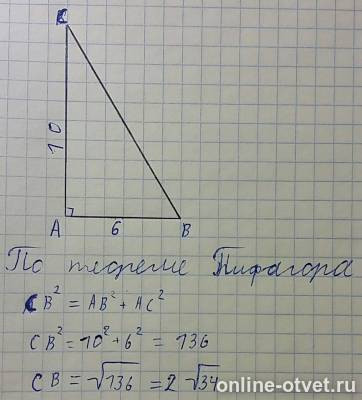 C
10
A 6 B
По теореме Пифагора
CB² = AB² + AC²
CB² = 10² + 6² = 136
CB = √136 = 2√34
online-otvet.ru